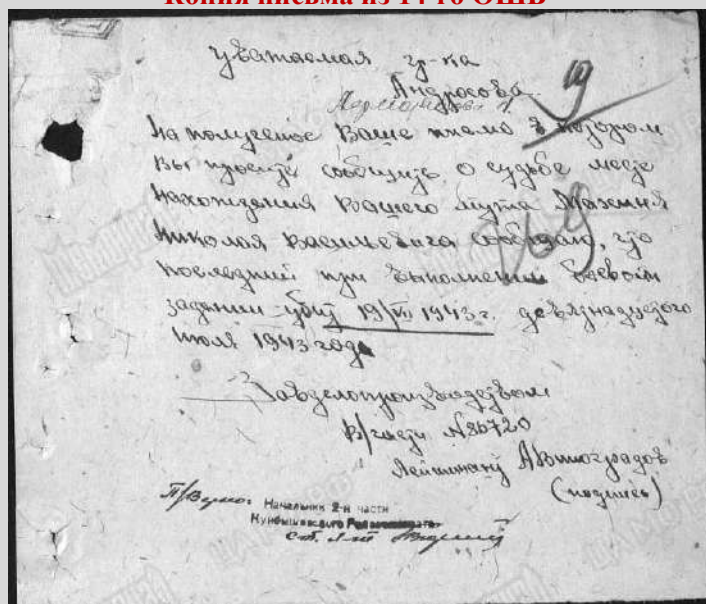 Копия письма из 14-го ОШБ
Уважаемая гр-ка
Андросова
На полученое Ваше письмо в котором
Вы просите сообщить о судьбе место
нахождения Вашего мужа Маземня
Николая Васильевича сообщаю, что
последний при выполнении боевом
задании убит 19/VII 1943 г. девятнадцатого
июля 1943 года
Завделопроизводством
В/части №86720
Лейтенант АВиноградов
(подпись)
П/Верно:
Начальник 2-й части
Куйбышевского Райвоенкомата
ст. л-т